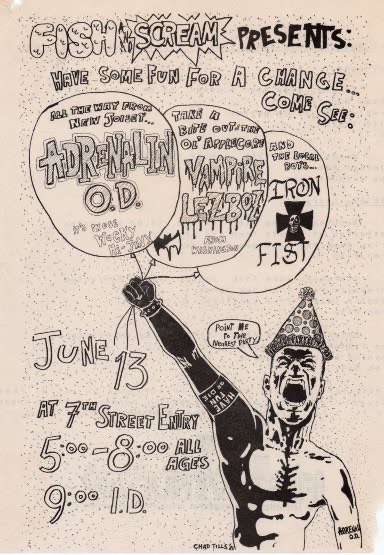 FISH SCREAM PRESENTS:
HAVE SOME FUN FOR A CHANGE...
COME SEE:
ALL THE WAY FROM
NEW JOISEY...
ADRENALIN
O.D.
IT'S THOSE
WACKY
TAKE A
BITE OUT-THE
OL' APPLECORE
VAMPIRE
LEZBOZ
FROM
WASHINGTON
AND
THE LOCAL
BOYS...
IRON
FIST
POINT ME
TO THE
NEAREST PARTY
HAVE
FUN
OR DIE
JUNE 13
AT 7TH STREET ENTRY
5:00-8:00 ALL
AGES
9:00 I.D.
CHAD TILLS
O.D.